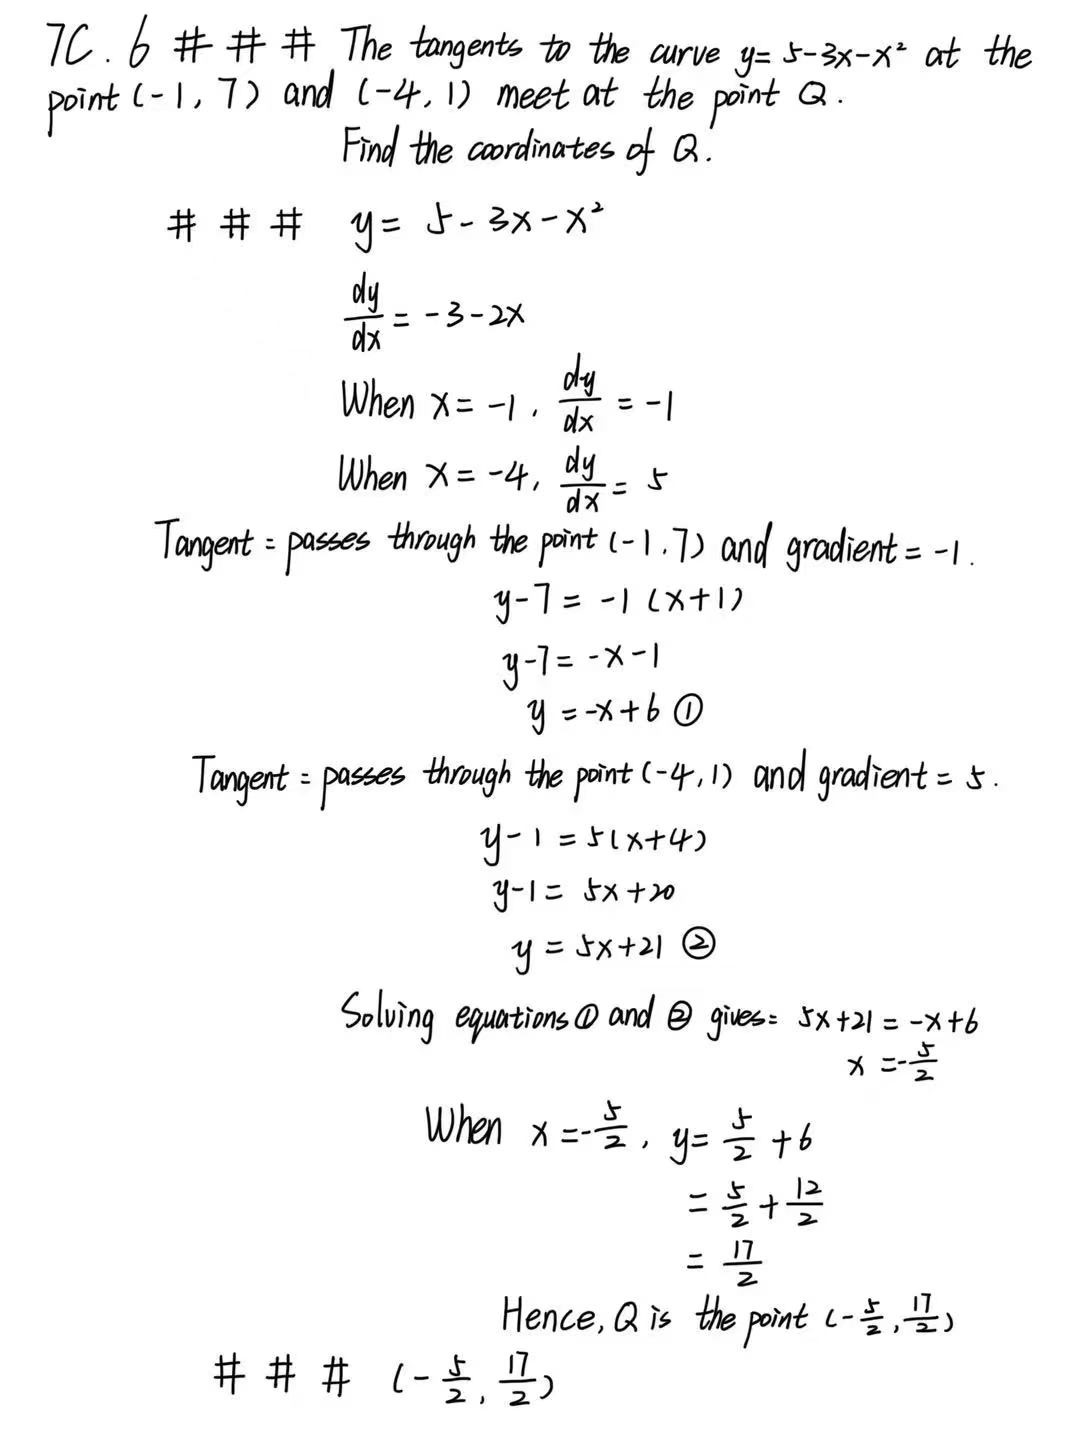 7C.6 # # # The tangents to the curve y= 5-3x-x² at the
point (-1, 7) and (-4, 1) meet at the point Q.
Find the coordinates of Q.
# # # y= 5-3x-x²
dy/dx = -3-2x
When x= -1, dy/dx = -1
When x= -4, dy/dx = 5
Tangent = passes through the point (-1.7) and gradient = -1.
y-7= -1 (x+1)
y-7= -x-1
y =-x+6 ①
Tangent = passes through the point (-4,1) and gradient = 5.
y-1 =5(x+4)
y-1= 5x+20
y = 5x+21 ②
Solving equations ① and ② gives= 5x+21 = -x+6
x =-5/2
When x =-5/2, y= 5/2 +6
= 5/2 + 12/2
= 17/2
Hence, Q is the point (-5/2, 17/2)
# # # (-5/2, 17/2)